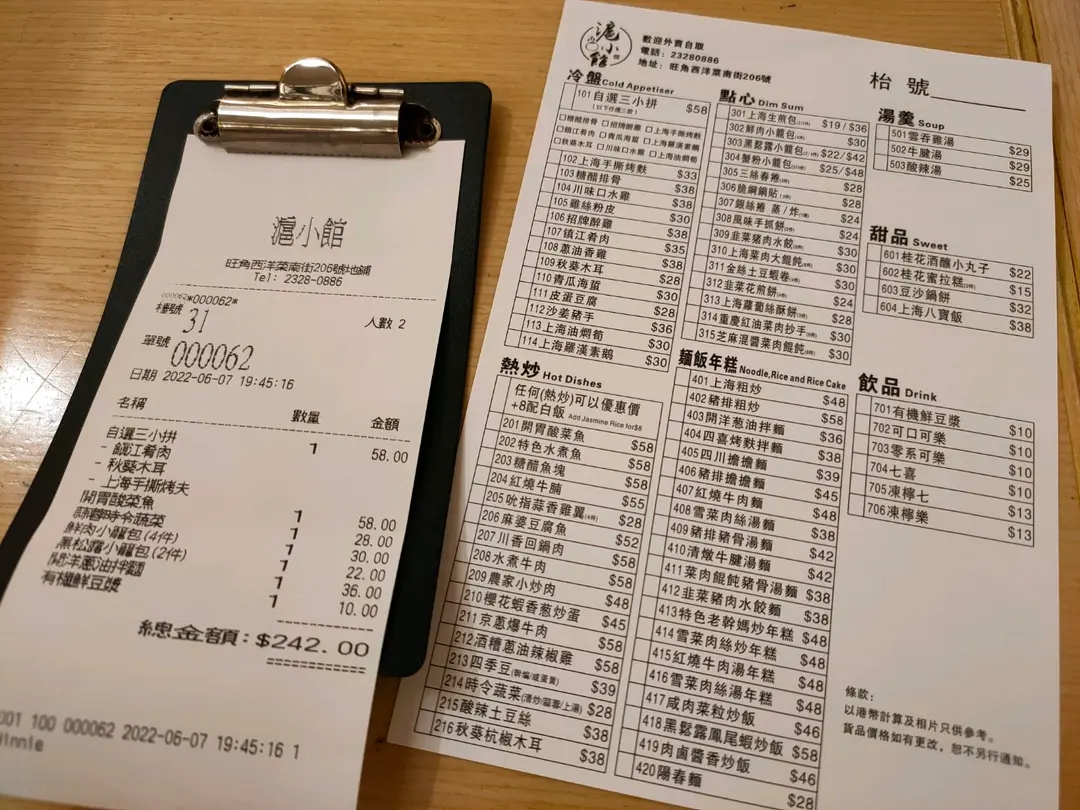 滬小館
旺角西洋菜南街206號地鋪
Tel: 2328-0886
000062*000062*
檯號 31
人數 2
單號 000062
日期 2022-06-07 19:45:16
名稱 數量 金額
自選三小拼 1 58.00
- 鎮江肴肉
- 秋葵木耳
- 上海手撕烤夫
開胃酸菜魚 1 58.00
蒜蓉時令蔬菜 1 28.00
鮮肉小籠包(4件) 1 30.00
黑松露小籠包(2件) 1 22.00
開洋蔥油拌麵 1 36.00
有機鮮豆漿 1 10.00
總金額：$242.00
001 100 000062 2022-06-07 19:45:16 1
Winnie
滬小館
歡迎外賣自取
電話：23280886
地址：旺角西洋菜南街206號
枱號
冷盤 Cold Appetiser
101 自選三小拼 $58
（以下任選三款）
□糖醋排骨 □招牌醉雞 □上海手撕烤麩
□鎮江肴肉 □青瓜海蜇 □上海羅漢素鵝
□秋葵木耳 □川味口水雞 □上海油燜筍
102 上海手撕烤麩 $33
103 糖醋排骨 $38
104 川味口水雞 $38
105 雞絲粉皮 $30
106 招牌醉雞 $38
107 鎮江肴肉 $35
108 蔥油香雞 $38
109 秋葵木耳 $28
110 青瓜海蜇 $30
111 皮蛋豆腐 $28
112 沙姜豬手 $36
113 上海油燜筍 $30
114 上海羅漢素鵝 $30
點心 Dim Sum
301 上海生煎包 $19 / $36
302 鮮肉小籠包 $30
303 黑鬆露小籠包 $22 / $42
304 蟹粉小籠包 $25 / $48
305 三絲春捲 $28
306 脆網鍋貼 $28
307 銀絲捲 蒸 / 炸 $24
308 風味手抓餅 $24
309 韭菜豬肉水餃 $30
310 上海菜肉大餛飩 $30
311 金絲土豆蝦卷 $30
312 韭菜花煎餅 $30
313 上海蘿蔔絲酥餅 $28
314 重慶紅油菜肉抄手 $30
315 芝麻混醬菜肉餛飩 $30
湯羹 Soup
501 雲吞雞湯 $29
502 牛腱湯 $29
503 酸辣湯 $25
甜品 Sweet
601 桂花酒釀小丸子 $22
602 桂花蜜拉糕 $15
603 豆沙鍋餅 $32
604 上海八寶飯 $38
熱炒 Hot Dishes
任何(熱炒)可以優惠價
+8配白飯 Add Jasmine Rice for $8
201 開胃酸菜魚 $58
202 特色水煮魚 $58
203 糖醋魚塊 $58
204 紅燒牛腩 $55
205 吮指蒜香雞翼(4件) $28
206 麻婆豆腐魚 $52
207 川香回鍋肉 $58
208 水煮牛肉 $58
209 農家小炒肉 $48
210 櫻花蝦香葱炒蛋 $45
211 京蔥爆牛肉 $58
212 酒糟蔥油辣椒雞 $58
213 四季豆(乾煸/咸蛋黃) $39
214 時令蔬菜(清炒/蒜蓉/上湯) $28
215 酸辣土豆絲 $38
216 秋葵杭椒木耳 $38
麵飯年糕 Noodle, Rice and Rice Cake
401 上海粗炒 $48
402 豬排粗炒 $58
403 開洋葱油拌麵 $36
404 四喜烤麩拌麵 $48
405 四川擔擔麵 $39
406 豬排擔擔麵 $45
407 紅燒牛肉麵 $48
408 雪菜肉絲湯麵 $38
409 豬排豬骨湯麵 $42
410 清燉牛腱湯麵 $42
411 菜肉餛飩豬骨湯麵 $38
412 韭菜豬肉水餃麵 $38
413 特色老幹媽炒年糕 $48
414 雪菜肉絲炒年糕 $48
415 紅燒牛肉湯年糕 $48
416 雪菜肉絲湯年糕 $48
417 咸肉菜粒炒飯 $46
418 黑鬆露鳳尾蝦炒飯 $58
419 肉鹵醬香炒飯 $46
420 陽春麵 $28
飲品 Drink
701 有機鮮豆漿 $10
702 可口可樂 $10
703 零系可樂 $10
704 七喜 $10
705 凍檸七 $13
706 凍檸樂 $13
條款：
以港幣計算及相片只供參考。
貨品價格如有更改，恕不另行通知。